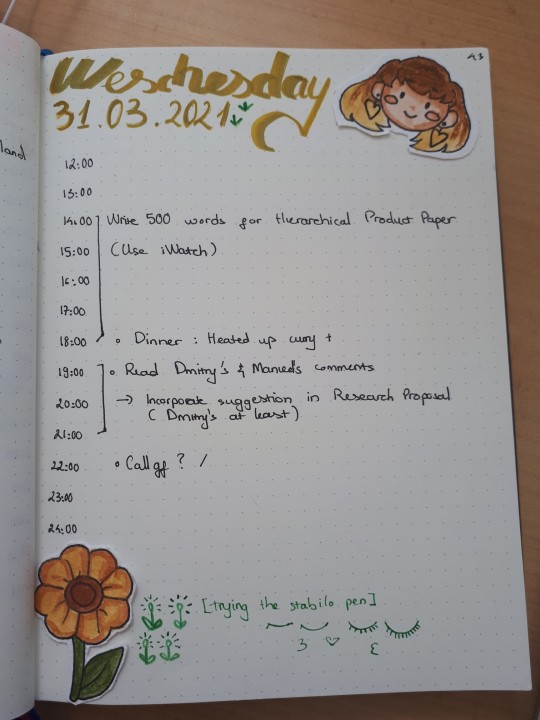 land
43
Weschesday
31.03.2021
12:00
13:00
14:00 Write 500 words for Hierarchical Product Paper
15:00 (Use iWatch)
16:00
17:00
18:00 • Dinner : Heated up curry +
19:00 • Read Dmitry's & Manuel's comments
20:00 → Incorporate suggestion in Research Proposal
(Dmitry's at least)
21:00
22:00 • Call gf ? /
23:00
24:00
[trying the stabilo pen]